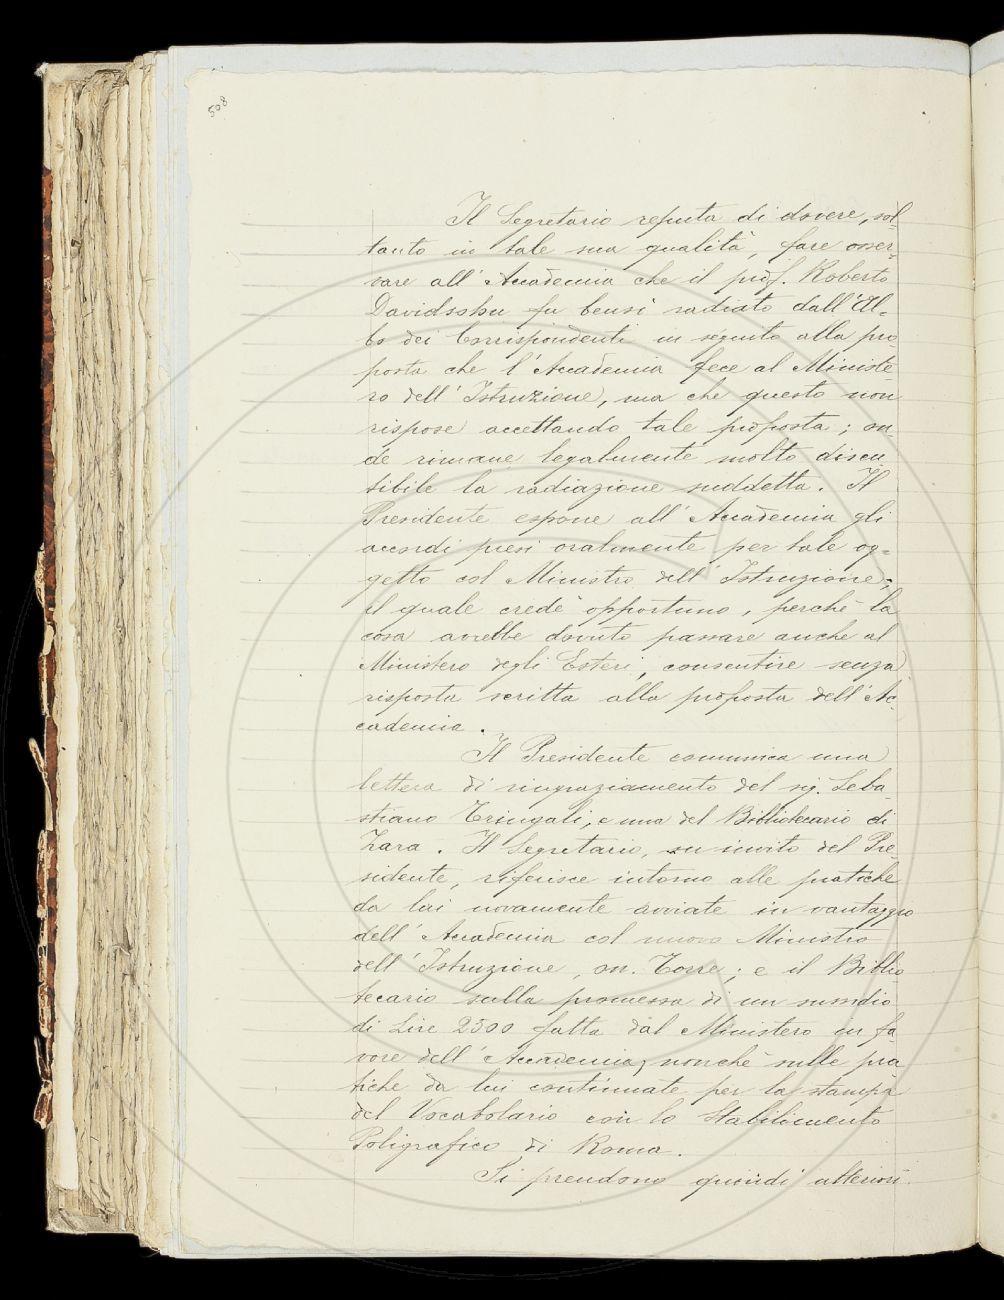 508
Il Segretario reputa di dovere, sol-
tanto in tale sua qualità, fare osser-
vare all'Accademia che il prof. Roberto
Davidsohn fu bensì radiato dall'Al-
bo dei Corrispondenti in séguito alla pro
posta che l'Accademia fece al Ministe-
ro dell'Istruzione, ma che questo non
rispose accettando tale proposta; on
de rimane legalmente molto discu
tibile la radiazione suddetta. Il
Presidente espone all'Accademia gli
accordi presi oralmente per tale og-
getto col Ministro dell'Istruzione;
il quale credè opportuno, perchè la
cosa avrebbe dovuto passare anche al
Ministero degli Esteri, consentire senza
risposta scritta alla proposta dell'Ac-
cademia.
Il Presidente comunica una
lettera di ringraziamento del sig. Seba-
stiano Tringali, e una del Bibliotecario di
Zara. Il Segretario, su invito del Pre-
sidente, riferisce intorno alle pratiche
da lui novamente avviate in vantaggio
dell'Accademia col nuovo Ministro
dell'Istruzione, on. Torre; e il Biblio
tecario sulla promessa di un sussidio
di Lire 2500 fatta dal Ministero in fa
vore dell'Accademia, nonchè sulle pra
tiche da lui continuate per la stampa
del Vocabolario con lo Stabilimento
Poligrafico di Roma.
Si prendono quindi ulteriori